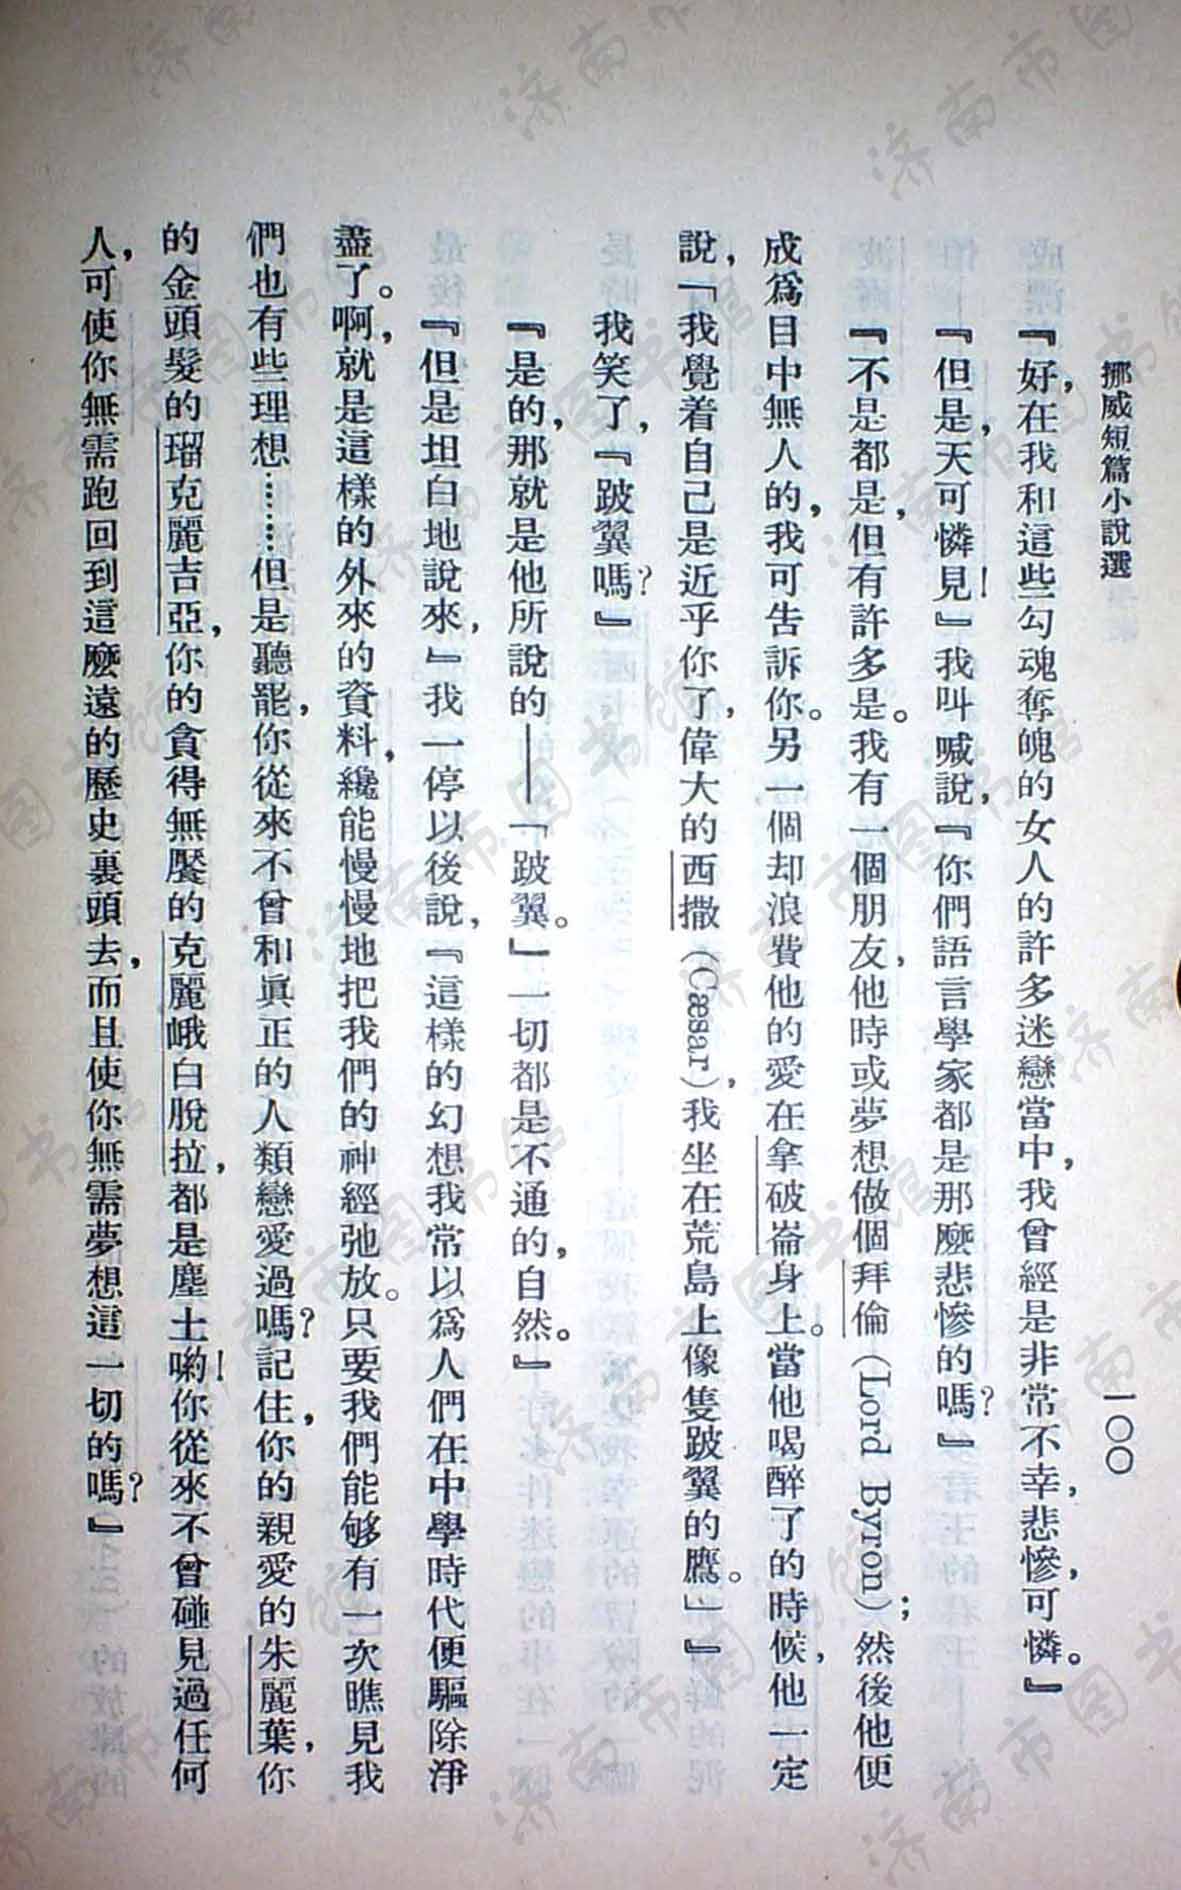 挪威短篇小說選
一〇〇
『好，在我和這些勾魂奪魄的女人的許多迷戀當中，我曾經是非常不幸，悲慘，可憐。』
『但是，天可憐見！』我叫喊說，『你們語言學家都是那麼悲慘的嗎？』
『不是都是，但有許多是。我有一個朋友，他時或夢想做個拜倫（Lord Byron）；然後他便
成爲目中無人的，我可告訴你。另一個却浪費他的愛在拿破崙身上。當他喝醉了的時候，他一定
說，「我覺着自己是近乎你了，偉大的西撒（Caesar），我坐在荒島上像隻跛翼的鷹。」』
我笑了，『跛翼嗎？』
『是的，那就是他所說的——「跛翼。」一切都是不通的，自然。』
『但是坦白地說來，』我一停以後說，『這樣的幻想我常以爲人們在中學時代便驅除淨
盡了。啊，就是這樣的外來的資料，纔能慢慢地把我們的神經弛放。只要我們能够有一次瞧見我
們也有些理想……但是聽罷，你從來不曾和眞正的人類戀愛過嗎？記住，你的親愛的朱麗葉，你
的金頭髮的瑠克麗吉亞，你的貪得無饜的克麗峨白脫拉，都是塵土喲！你從來不曾碰見過任何
人，可使你無需跑回到這麼遠的歷史裏頭去，而且使你無需夢想這一切的嗎？』
济南市图书馆